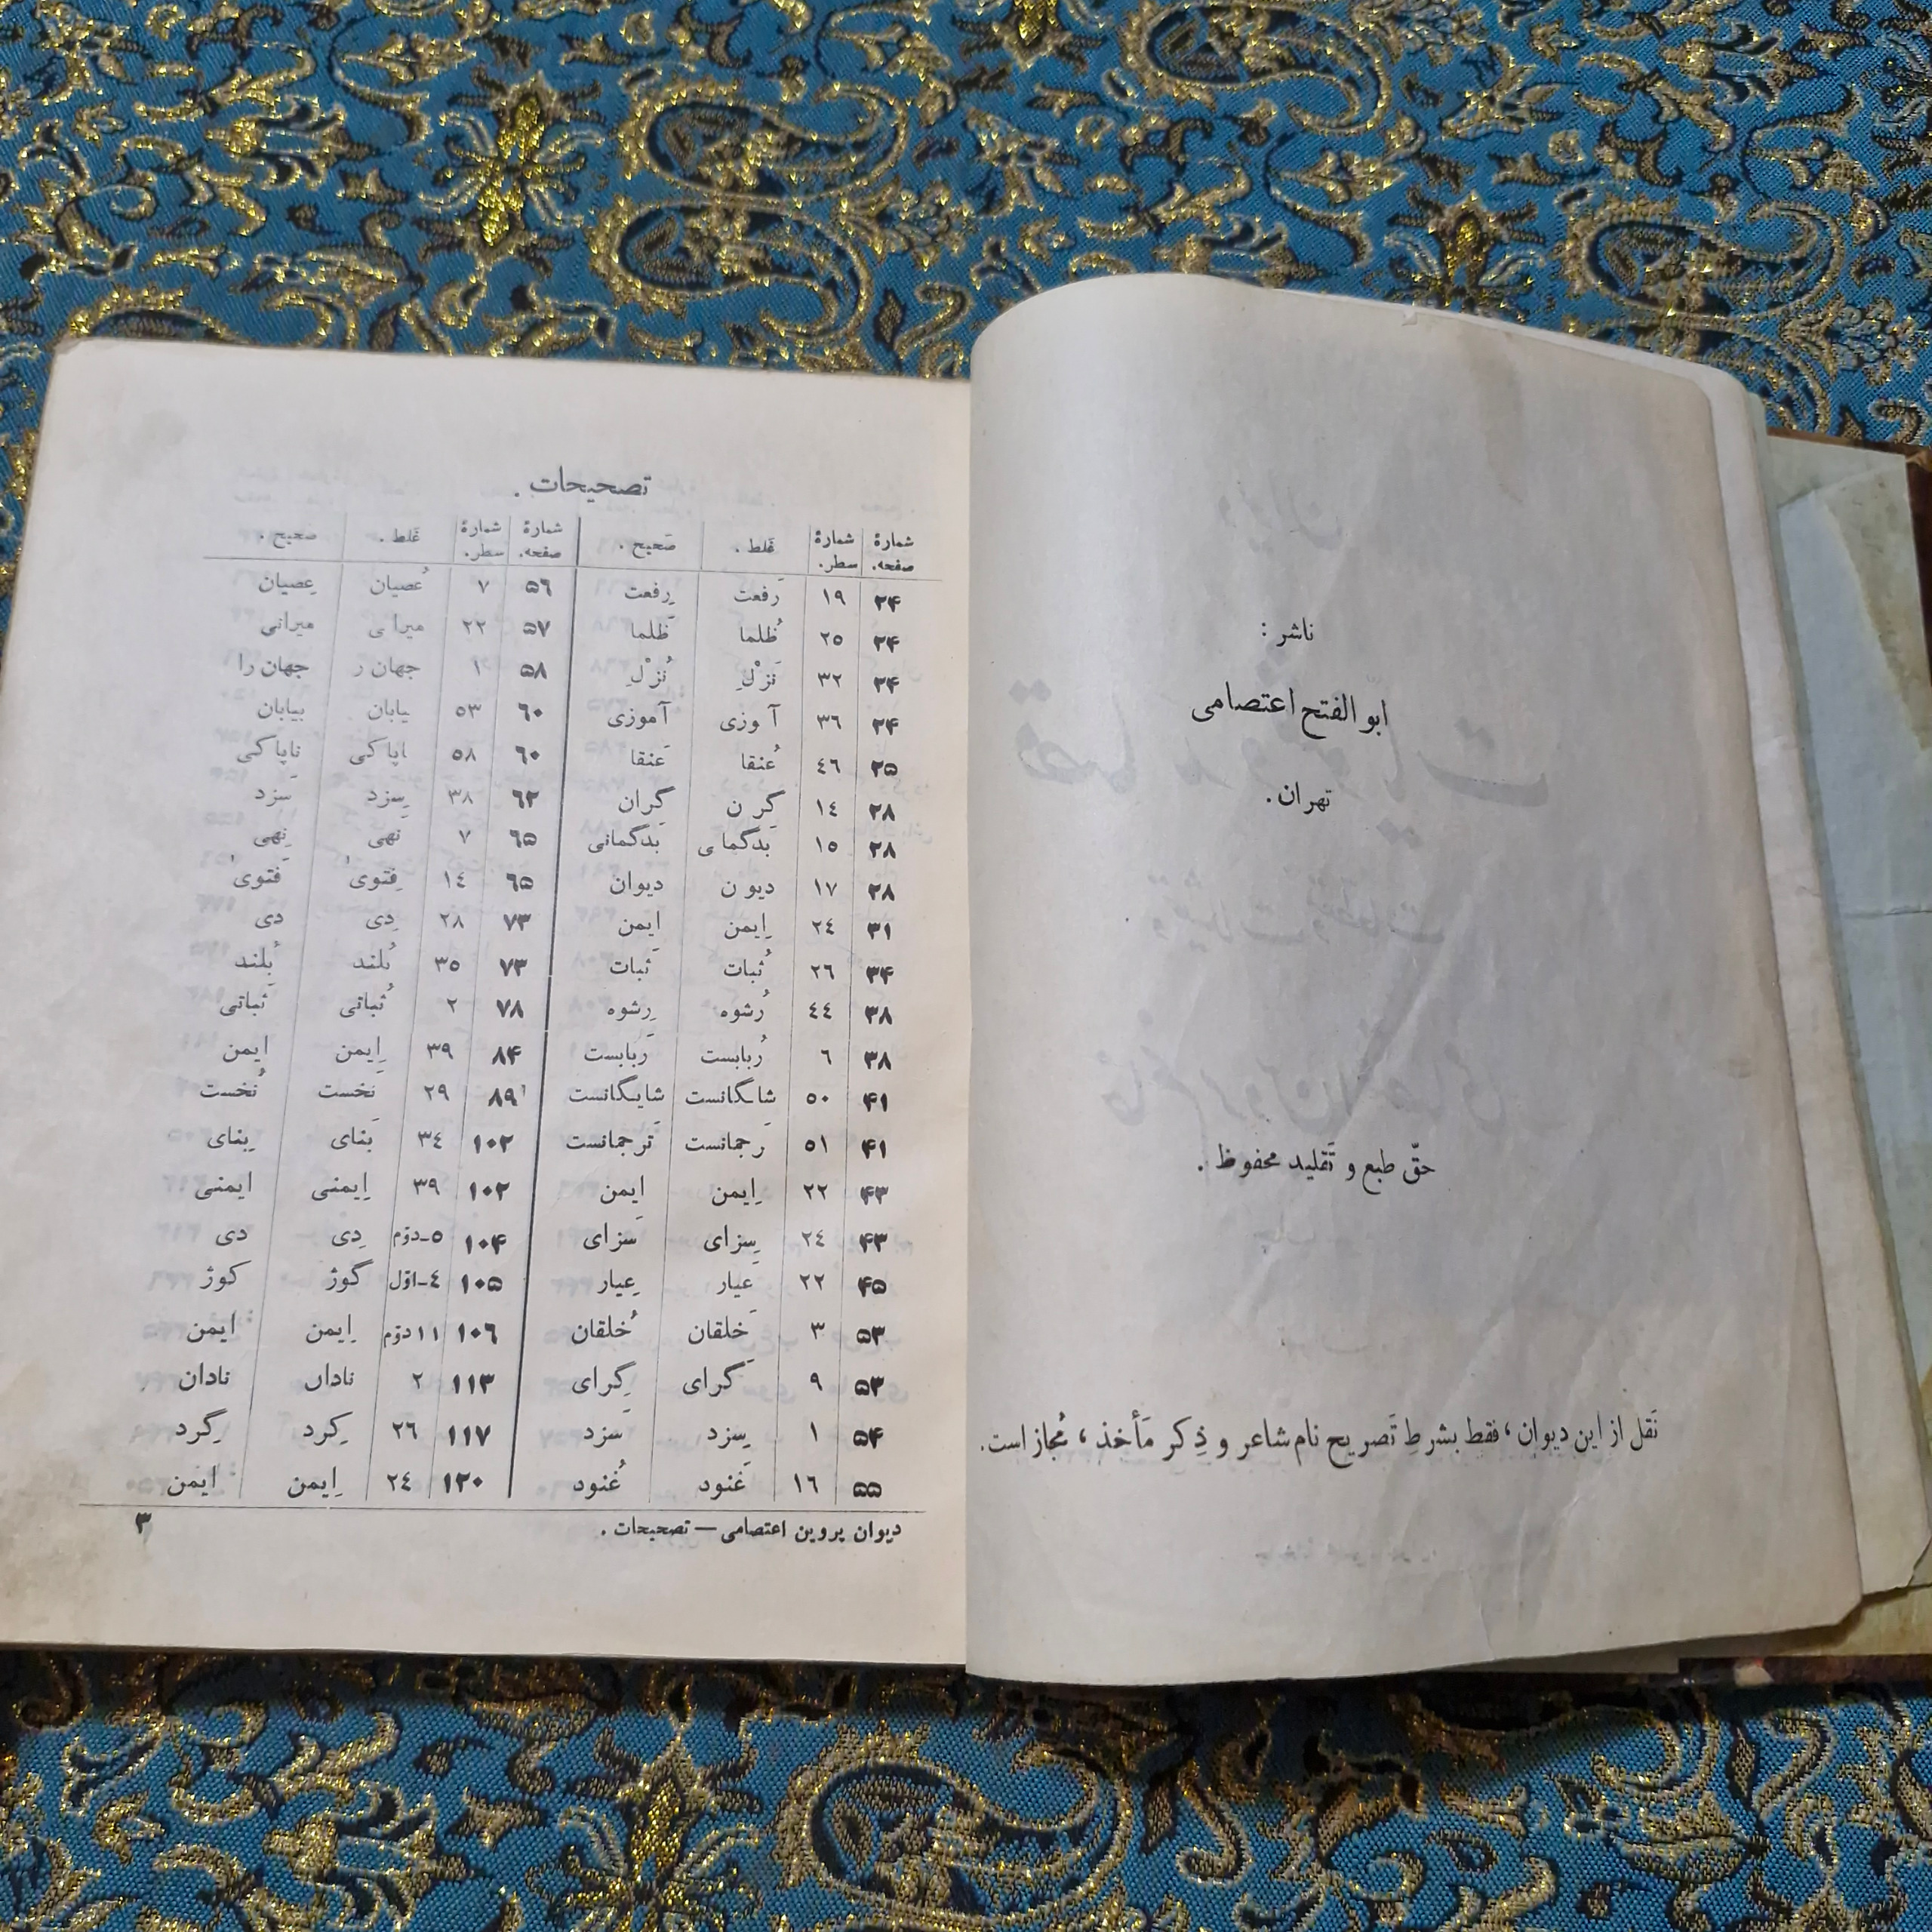 ناشر :
ابوالفتح اعتصامی
تهران.
حقّ طبع و تَقلید محفوظ .
نَقل از این دیوان، فقط بشرطِ تَصریح نام شاعر و ذِکر مَأخذ، مُجاز است.
تصحیحات .
شمارهٔ صفحه. شمارهٔ سطر. غَلط . صَحیح . شمارهٔ صفحه. شمارهٔ سطر. غَلط . صَحیح .
۲۴ ۱۹ رَفعت رِفعت ۵۶ ۷ عُصیان عِصیان
۲۴ ۲۵ ظُلما ظَلما ۵۷ ۲۲ میرا ی میرانی
۲۴ ۳۲ نَزْلِ نُزْلِ ۵۸ ۱ جهان ر جهان را
۲۴ ۳۶ آ وزی آموزی ۶۰ ۵۳ یابان بیابان
۲۵ ۴۶ عُنقا عَنقا ۶۰ ۵۸ اپاکی ناپاکی
۲۸ ۱۴ کِر ن کِران ۶۲ ۳۸ سِزد سَزد
۲۸ ۱۵ بَدگما ی بَدگمانی ۶۵ ۷ نَهی نِهی
۲۸ ۱۷ دیو ن دیوان ۶۵ ۱۴ فِتویٰ فَتویٰ
۳۱ ۲۴ اِیمن ایمن ۷۳ ۲۸ دِی دی
۳۴ ۲۶ ثُبات ثَبات ۷۳ ۳۵ بُلند بَلند
۳۸ ۴۴ رُشوه رِشوه ۷۸ ۲ ثُباتی ثَباتی
۳۸ ۶ رُبابست رَبابست ۸۴ ۳۹ اِیمن ایمن
۴۱ ۵۰ شاگانست شایگانست ۸۹ ۲۹ نَخست نُخست
۴۱ ۵۱ رَجمانست تَرجمانست ۱۰۲ ۳۴ بَنای بِنای
۴۳ ۲۲ اِیمن ایمن ۱۰۲ ۳۹ اِیمنی ایمنی
۴۳ ۲۴ سِزای سَزای ۱۰۴ ۵-دوّم دِی دی
۴۵ ۲۲ عَیار عِیار ۱۰۵ ۴-اوّل گوژ کوژ
۵۳ ۳ خَلقان خُلقان ۱۰۶ ۱۱ دوّم اِیمن ایمن
۵۳ ۹ گَرای گِرای ۱۱۳ ۲ ناداں نادان
۵۴ ۱ سِزد سَزد ۱۱۷ ۲۶ کِرد گِرد
۵۵ ۱۶ غَنود غُنود ۱۲۰ ۲۴ اِیمن ایمن
دیوان پروین اعتصامی — تصحیحات . ۳